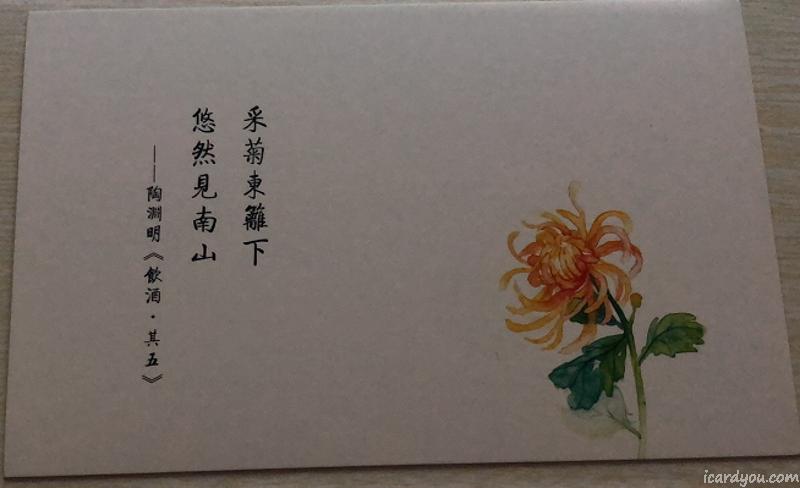 采菊東籬下
悠然見南山
——陶淵明《飲酒·其五》
icardyou.com